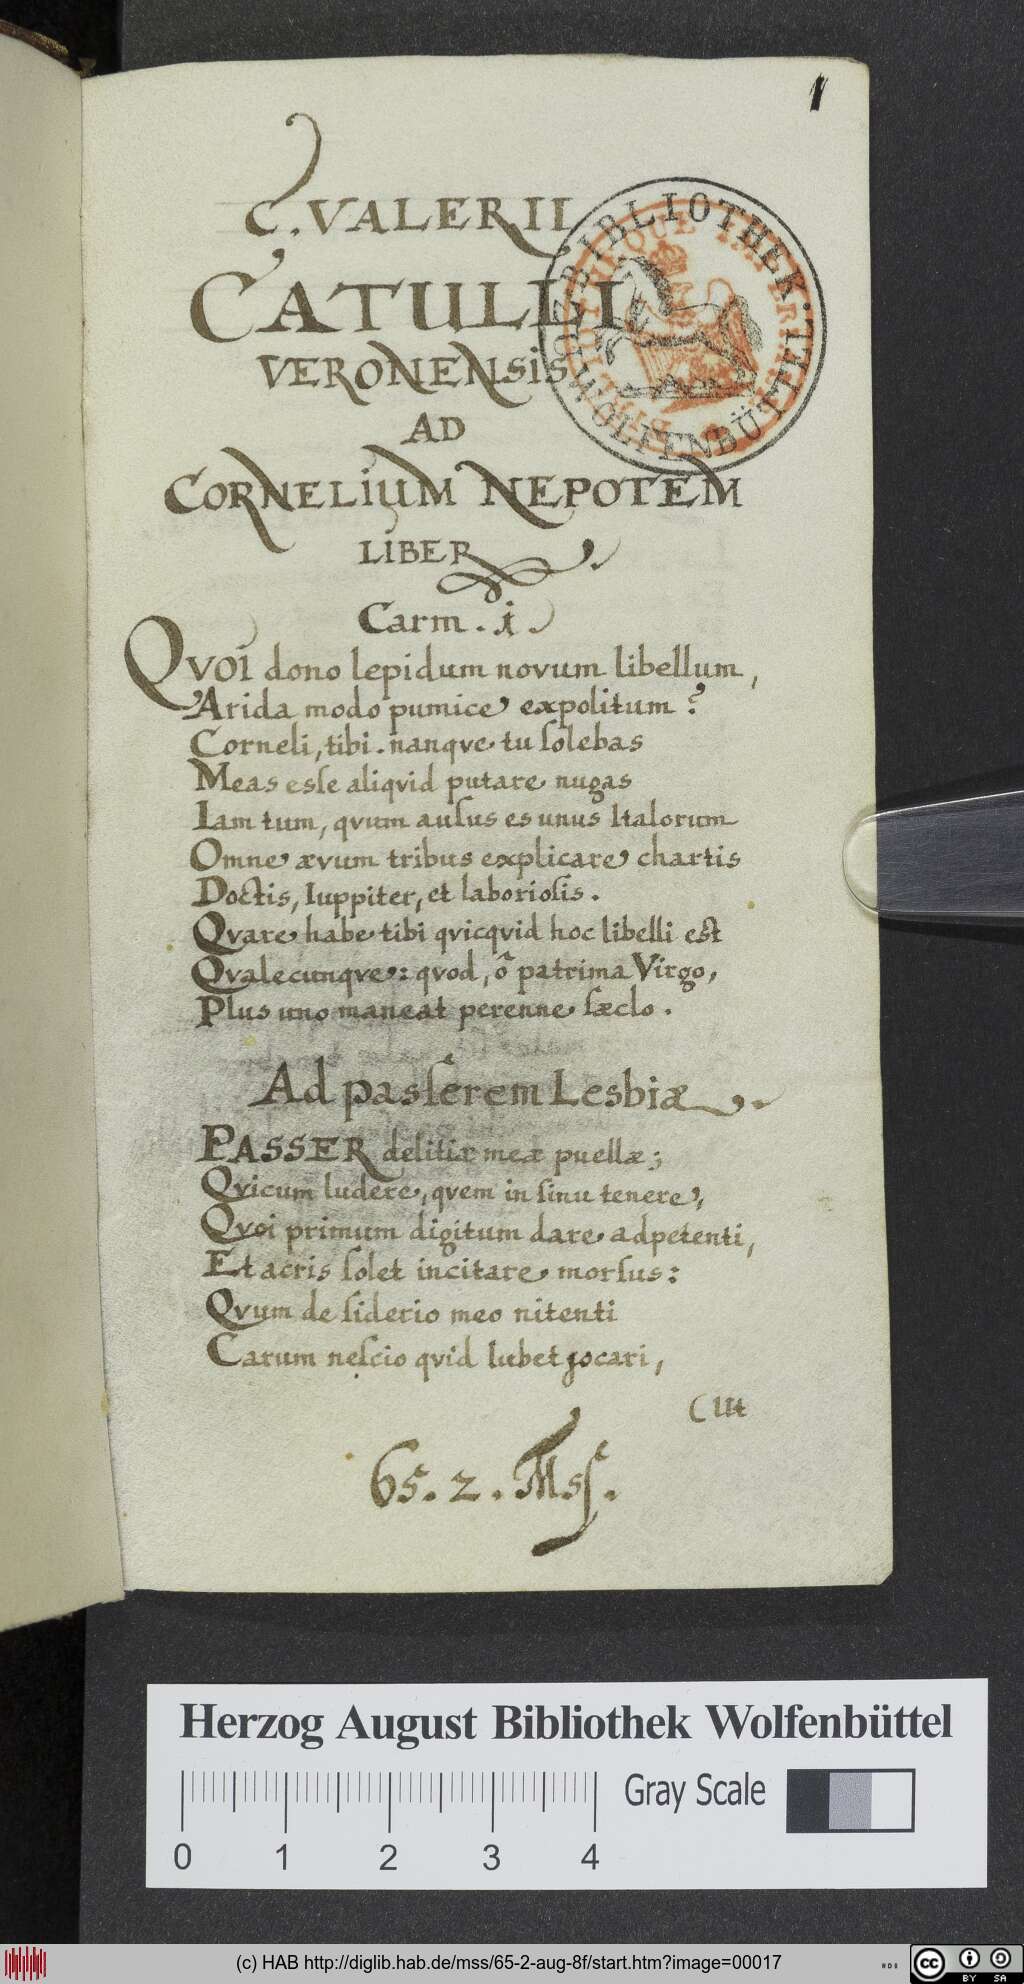 1
C. VALERII
CATULLI
VERONENSIS
AD
CORNELIUM NEPOTEM
LIBER
Carm. i.
QVOI dono lepidum novum libellum,
Arida modo pumice expolitum?
Corneli, tibi. nanqve tu ſolebas
Meas eſſe aliqvid putare nugas
Iam tum, qvum auſus es unus Italorum
Omne ævum tribus explicare chartis
Doctis, Iuppiter, et laborioſis.
Qvare habe tibi qvicqvid hoc libelli est
Qvalecunqve: qvod, ô patrima Virgo,
Plus uno maneat perenne ſæclo.
Ad pasſerem Lesbiæ.
PASSER delitiæ meæ puellæ;
Qvicum ludere, qvem in ſinu tenere,
Qvoi primum digitum dare adpetenti,
Et acris ſolet incitare morſus:
Qvum de ſiderio meo nitenti
Carum neſcio qvid lubet jocari,
(Ut
65. 2. Msſ.
BIBLIOTHEK
WOLFENBÜTTEL
Herzog August Bibliothek Wolfenbüttel
0 1 2 3 4
Gray Scale
(c) HAB http://diglib.hab.de/mss/65-2-aug-8f/start.htm?image=00017
cc BY SA